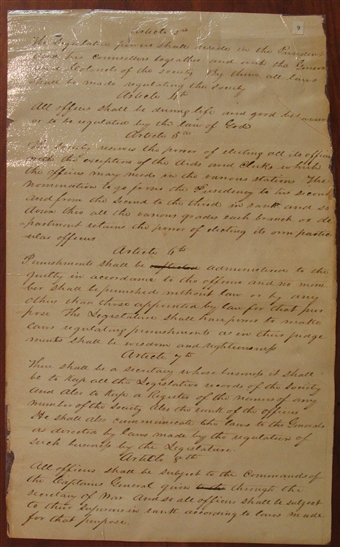 9
Article 3rd
The Legislative powers shall reside in the Presidency
and his Counsellors together and with the Generals
and Colonels of the Society By them all laws
shall be made regulating the Society
Article 4th
All offices shall be during life and good behavior
or to be regulated by the law of God
Article 5th
The Society reserves the power of electing all its officers
with the exception of the Aids and Clerks which
the officers may need in their various stations The
nomination to go from the Presidency to his second
and from the second to the third in rank and so
down thro all the various grades each branch or de
partment retains the power of electing its own partic
ular officers
Article 6th
Punishments shall be administered to the
guilty in accordance to the offence and no mem
ber shall be punished without law or by any
others than those appointed by law for that pur
pose The Legislature shall have power to make
laws regulating punishments as in their judge
ments shall be wisdom and righteousness
Article 7th
There shall be a secretary whose business it shall
be to keep all the Legislative records of the Society
and also to keep a Register of the names of every
member of the Society also the rank of the officers
He shall also communicate the laws to the Generals
as directed by laws made by the regulation of
such business by the Legislature
Article 8th
All officers shall be subject to the commands of
the Captain General given through the
Secretary of War and so all officers shall be subject
to their superiors in rank according to laws made
for that purpose